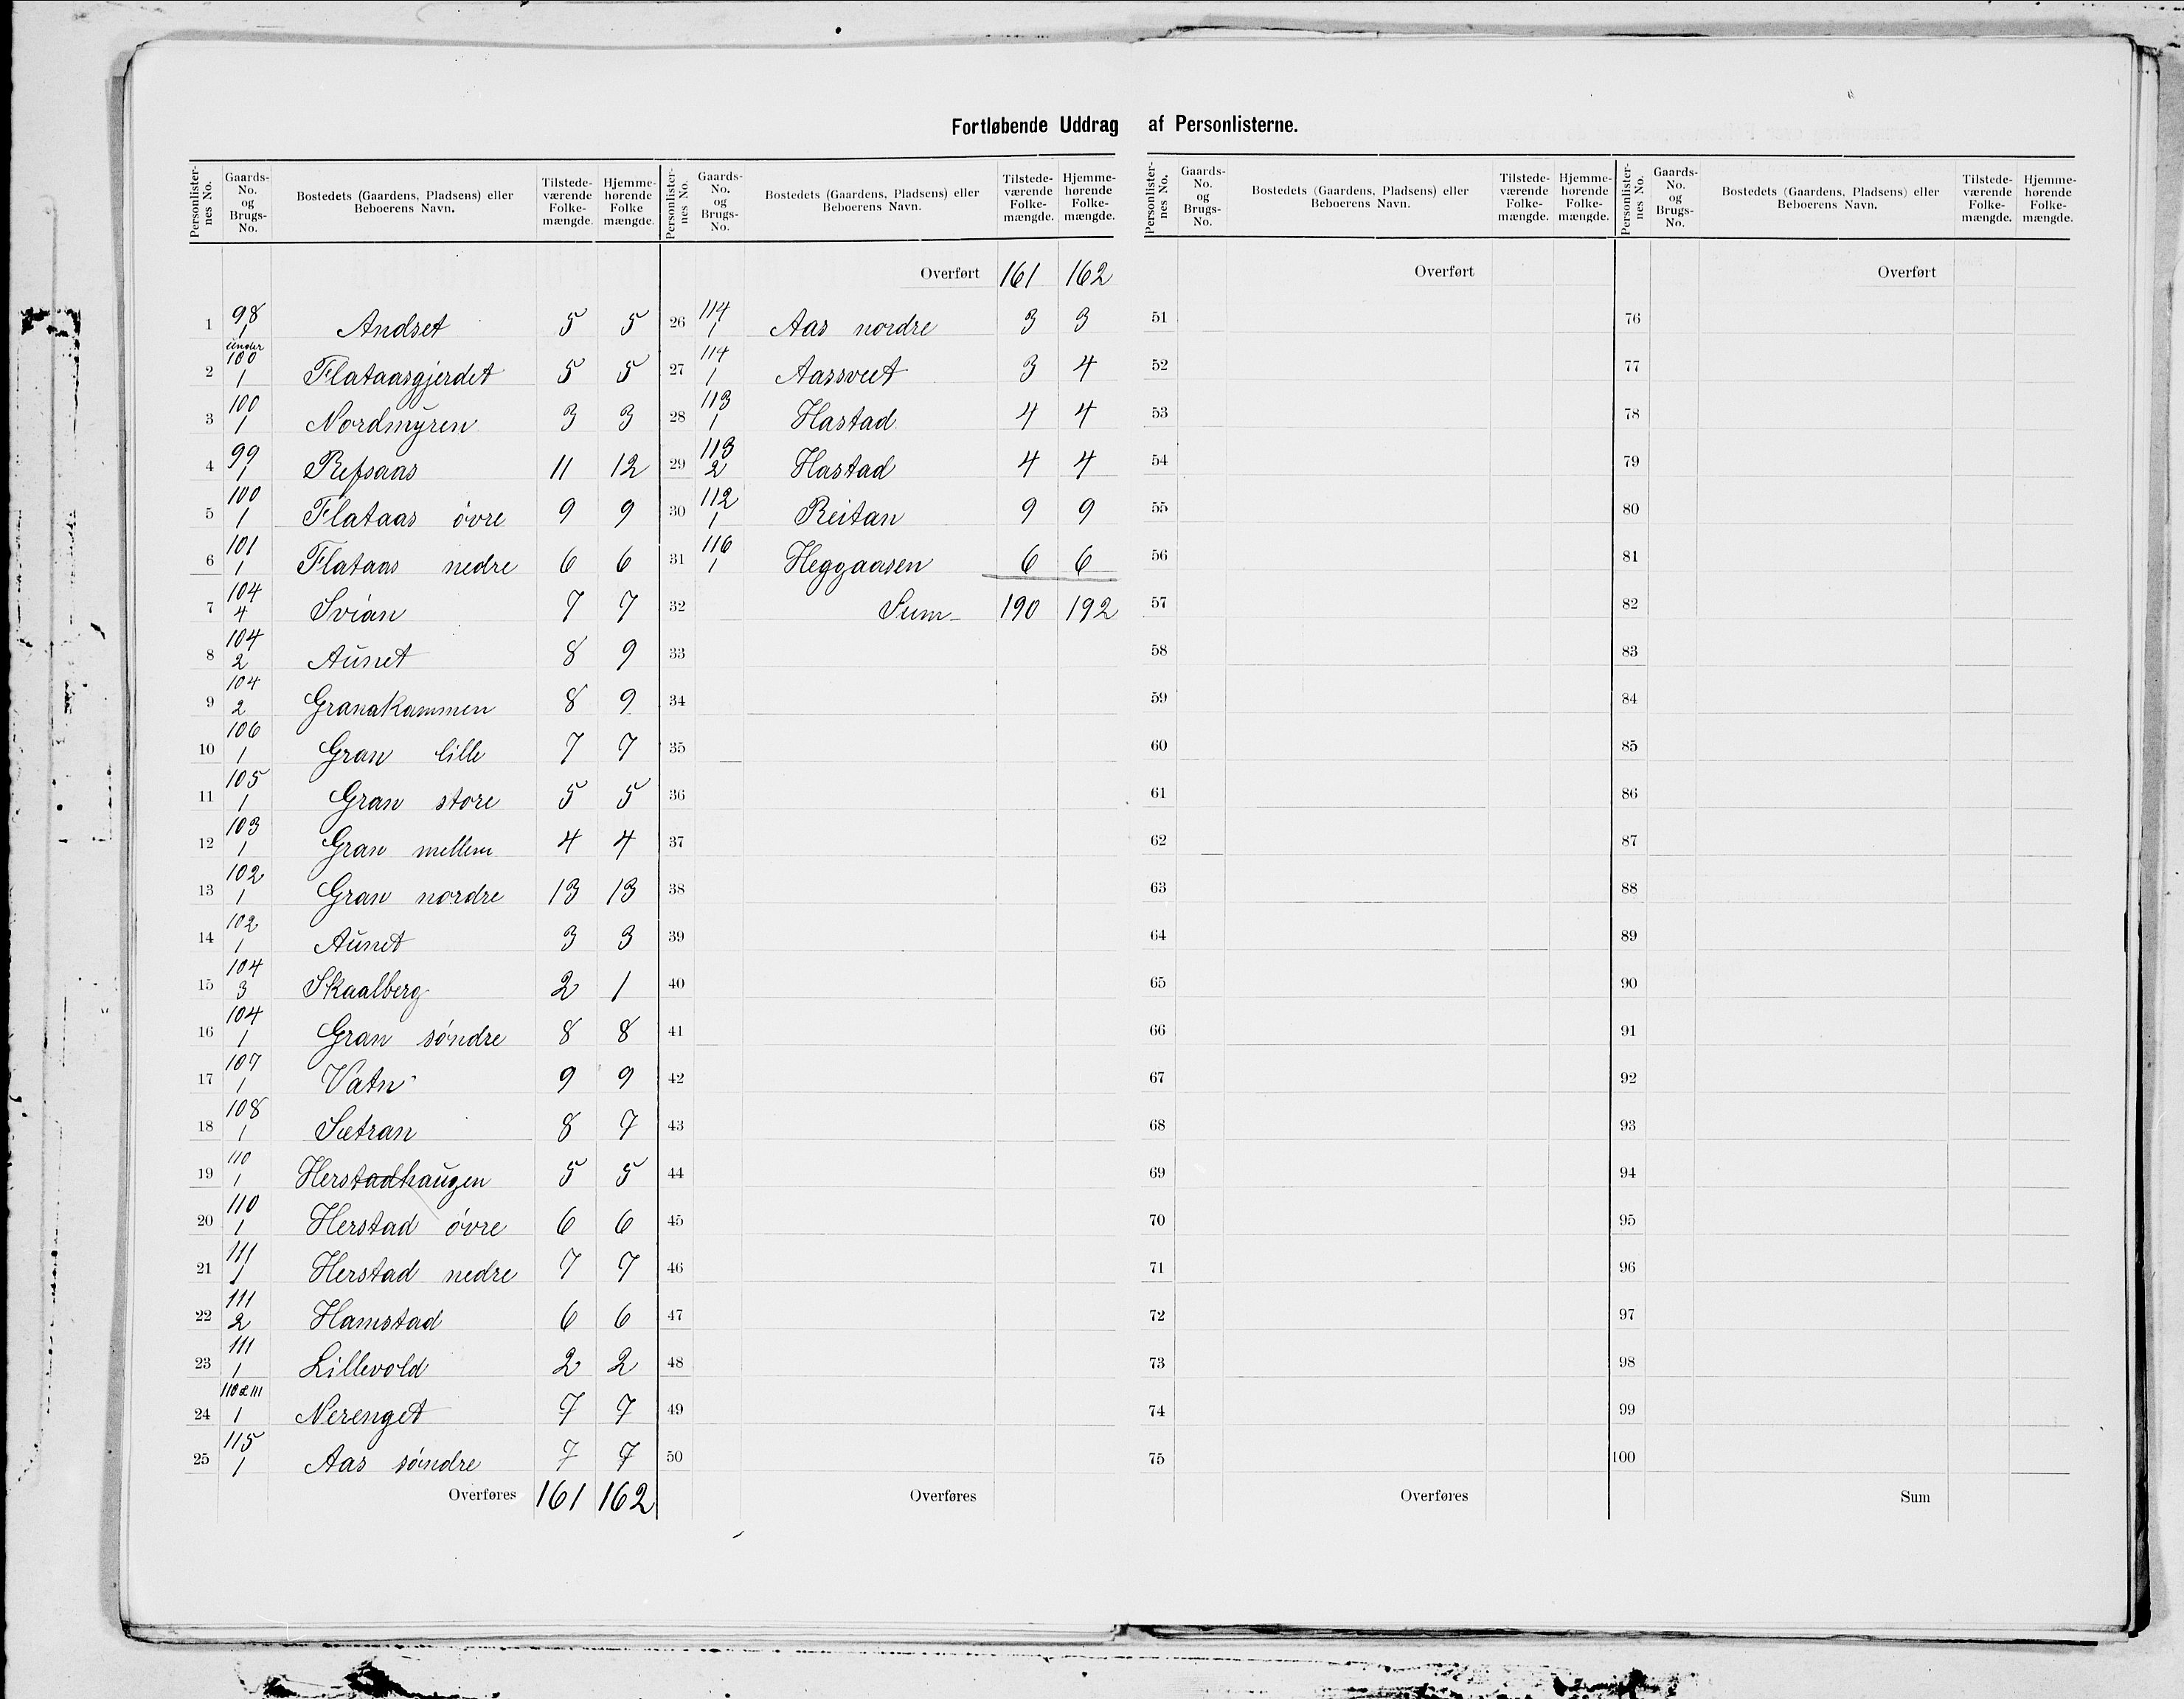 Fortløbende Uddrag af Personlisterne.
Personlister-nes No. Gaards-No. og Brugs-No. Bostedets (Gaardens, Pladsens) eller Beboerens Navn. Tilstede-værende Folke-mængde. Hjemme-hørende Folke mængde.
1 98/1 Andset 5 5
2 under 100/1 Flataasgjerdet 5 5
3 100/1 Nordmyren 3 3
4 99/1 Refsaas 11 12
5 100/1 Flataas øvre 9 9
6 101/1 Flataas nedre 6 6
7 104/4 Svian 7 7
8 104/2 Aunet 8 9
9 104/2 Granakammen 8 9
10 106/1 Gran lille 7 7
11 105/1 Gran store 5 5
12 103/1 Gran mellem 4 4
13 102/1 Gran nordre 13 13
14 102/1 Aunet 3 3
15 104/3 Skaalberg 2 1
16 104/1 Gran søndre 8 8
17 107/1 Vatn 9 9
18 108/1 Sætran 8 7
19 110/1 Herstadhaugen 5 5
20 110/1 Herstad øvre 6 6
21 111/1 Herstad nedre 7 7
22 111/2 Hamstad 6 6
23 111/1 Lillevold 2 2
24 110 & 111/1 Nerenget 7 7
25 115/1 Aas søndre 7 7
Overføres 161 162
Personlister-nes No. Gaards-No. og Brugs-No. Bostedets (Gaardens, Pladsens) eller Beboerens Navn. Tilstede-værende Folke-mængde. Hjemme-hørende Folke-mængde.
Overført 161 162
26 114/1 Aas nordre 3 3
27 114/1 Aassveet 3 4
28 113/1 Hastad 4 4
29 113/2 Hastad 4 4
30 112/1 Reitan 9 9
31 116/1 Heggaasen 6 6
32 Sum 190 192
33
34
35
36
37
38
39
40
41
42
43
44
45
46
47
48
49
50
Overføres
Personlister-nes No. Gaards-No. og Brugs-No. Bostedets (Gaardens, Pladsens) eller Beboerens Navn. Tilstede-værende Folke-mængde. Hjemme-hørende Folke-mængde.
Overført
51
52
53
54
55
56
57
58
59
60
61
62
63
64
65
66
67
68
69
70
71
72
73
74
75
Overføres
Personlister-nes No. Gaards-No. og Brugs-No. Bostedets (Gaardens, Pladsens) eller Beboerens Navn. Tilstede-værende Folke-mængde. Hjemme-hørende Folke-mængde.
Overført
76
77
78
79
80
81
82
83
84
85
86
87
88
89
90
91
92
93
94
95
96
97
98
99
100
Sum